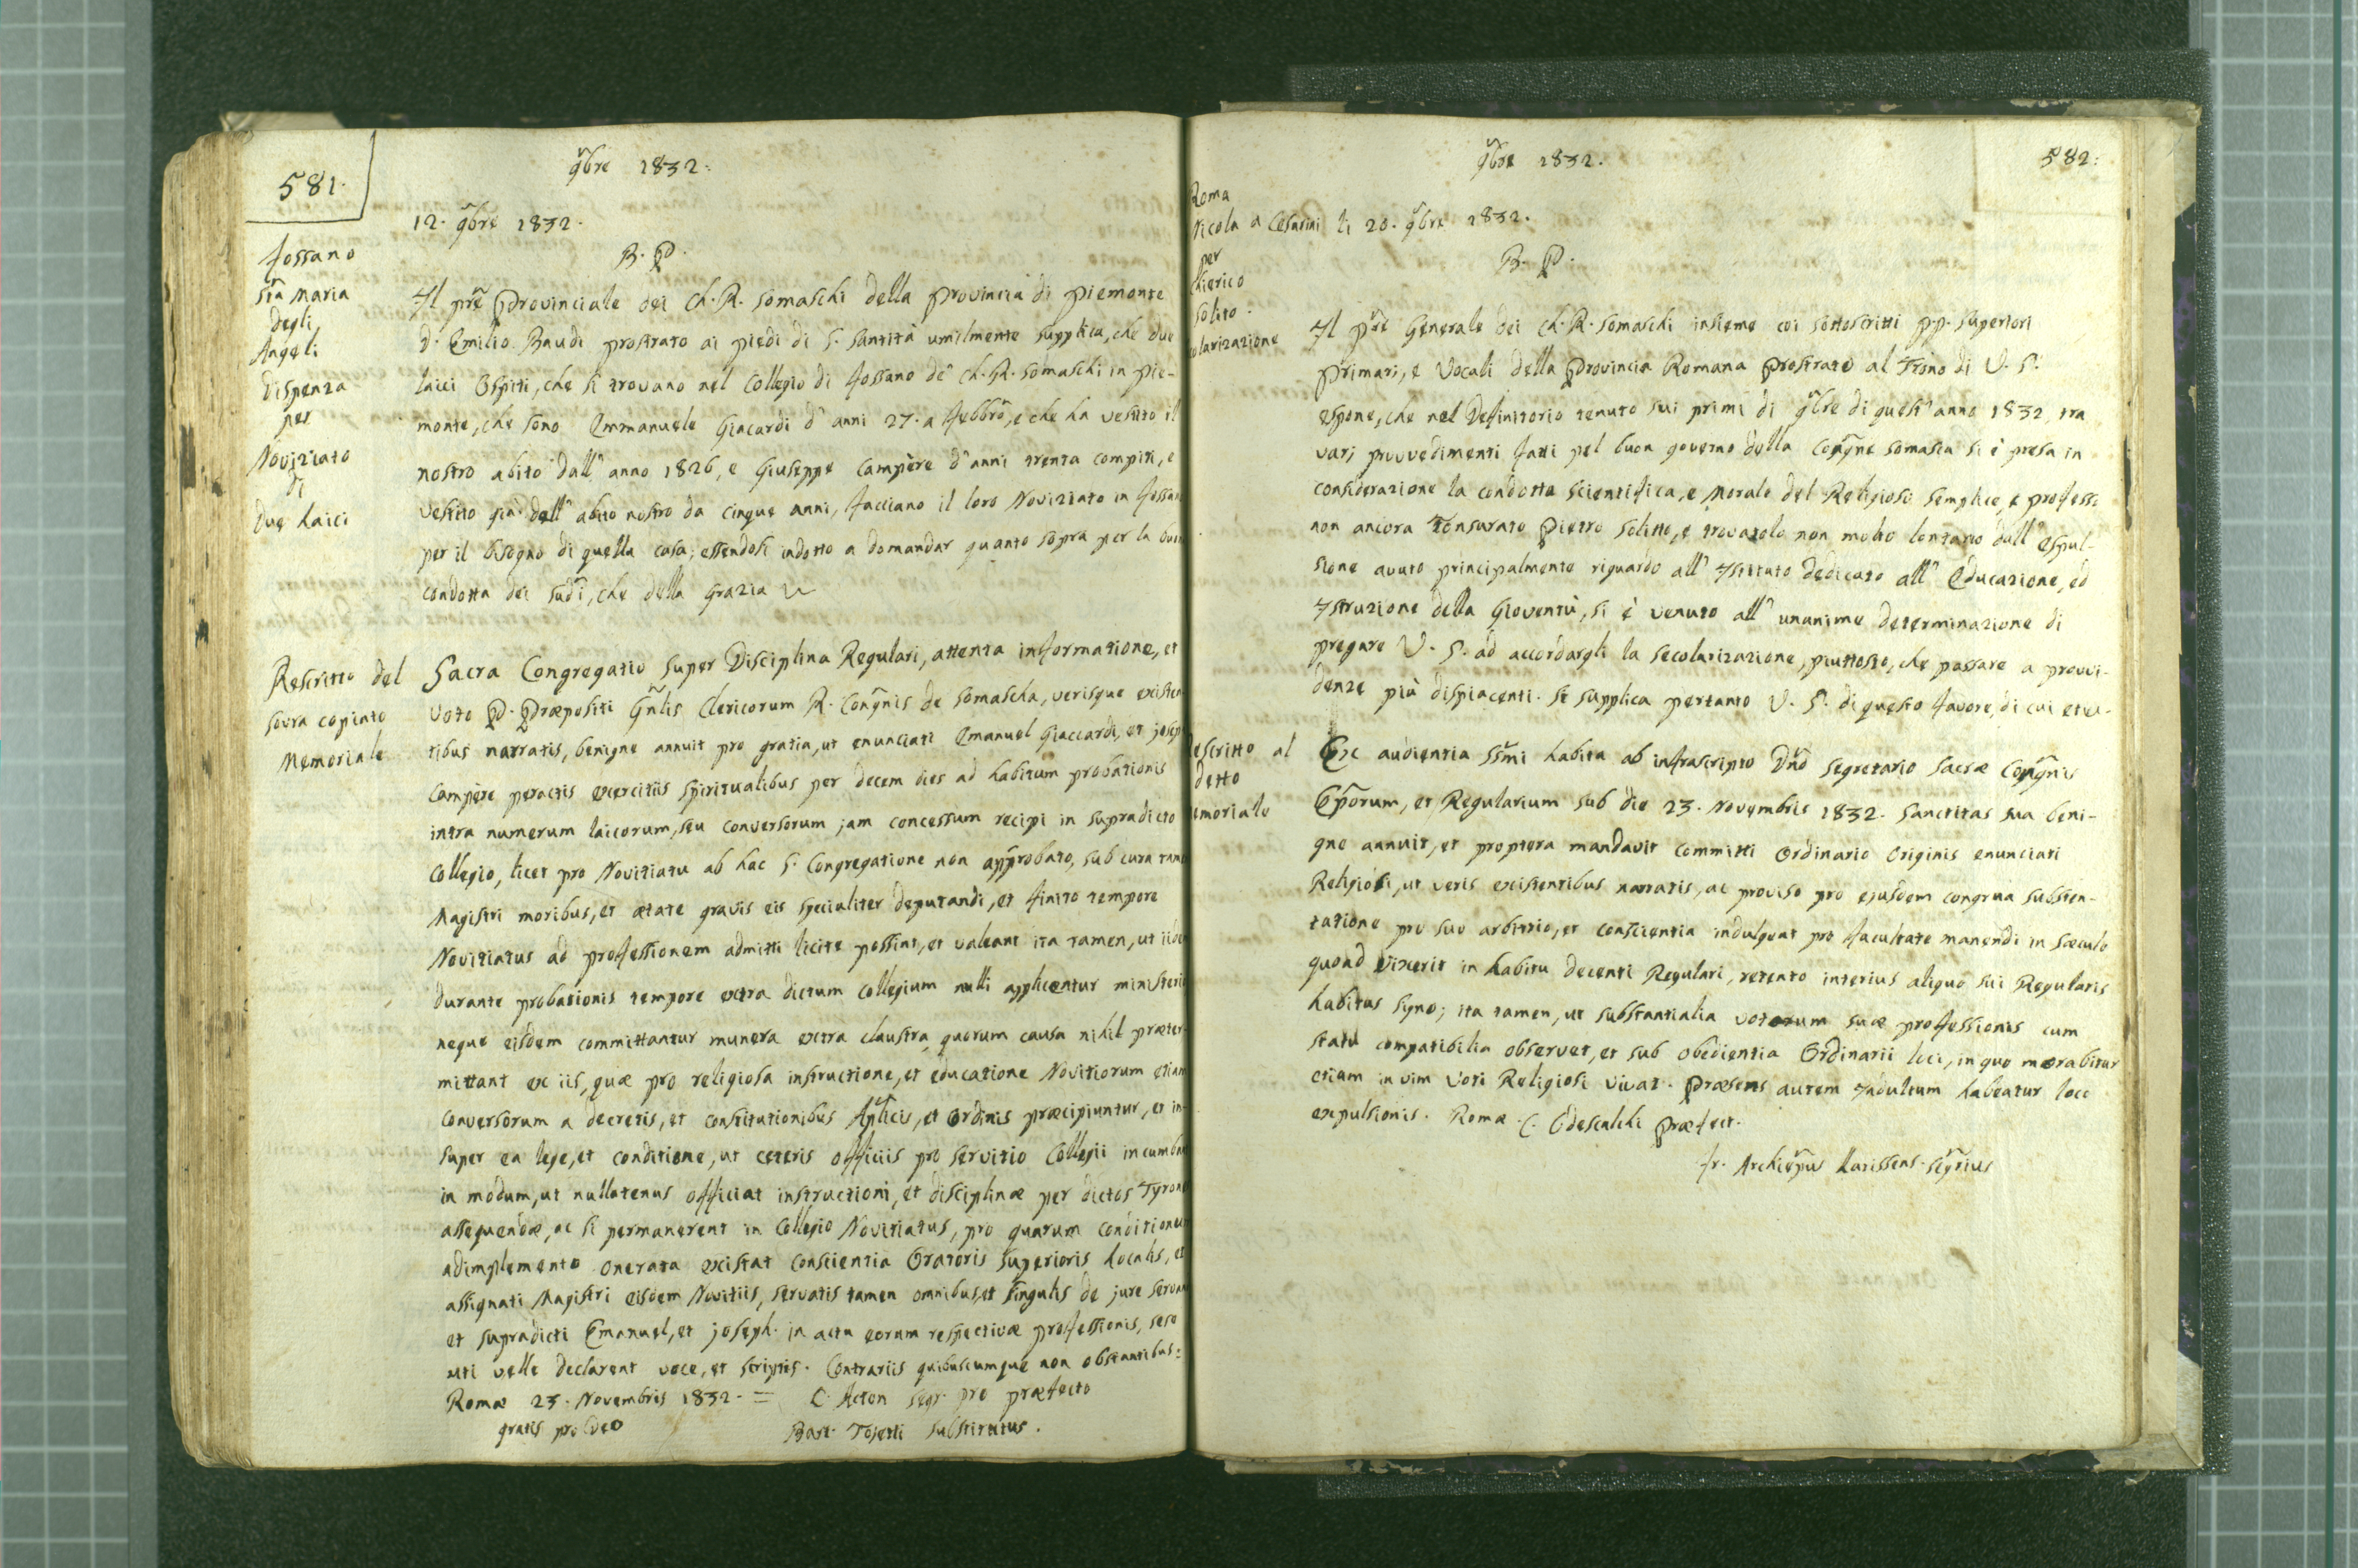 581.
9bre 1832.
12. 9bre 1832.
B. P.
Fossano
Sta Maria
degli
Angeli
Dispenza
per
Noviziato
di
due Laici
Il pre Provinciale dei Ch. R. Somaschi della Provincia di Piemonte
D. Emilio Baudi prostrato ai piedi di S. Santità umilmente supplica, che due
laici Ospiti, che si trovano nel Collegio di Fossano de' Ch. R. Somaschi in Pie-
monte, che sono Emmanuele Giacardi d' anni 27. a Febbro, e che ha vestito il
nostro abito dall' anno 1826, e Giuseppe Campère d' anni trenta compiti, e
vestito già dell' abito nostro da cinque anni, facciano il loro Noviziato in Fossan
per il bisogno di quella casa; essendosi indotto a domandar quanto sopra per la buon
condotta dei sudi, che della Grazia
Rescritto del
sovra copiato
Memoriale
Sacra Congregatio super Disciplina Regulari, attenta informatione, et
voto P. Præpositi Gnlis Clericorum R. Congnis de Somascha, verisque existen
tibus narratis, benigne annuit pro gratia, ut enunciati Emanuel Giaccardi, et joseph
Campère peractis exercitiis spiritualibus per decem dies ad habitum probationis
intra numerum laicorum, seu conversorum jam concessum recipi in supradicto
Collegio, licet pro Novitiatu ab hac S. Congregatione non approbato, sub cura tame
Magistri moribus, et ætate gravis eis specialiter deputandi, et finito tempore
Novitiatus ad professionem admitti licite possint, et valeant ita tamen, ut iide
durante probationis tempore extra dictum collegium nulli applicentur ministeri
neque eisdem committantur munera extra claustra, quorum causa nihil præter-
mittant ex iis, quæ pro religiosa instructione, et educatione Novitiorum etiam
conversorum a decretis, et constitutionibus Aplicis, et Ordinis præcipiuntur, et in-
super ea lege, et conditione, ut ceteris officiis pro servitio Collegii incumba
in modum, ut nullatenus officiat instructioni, et disciplinæ per dictos Tyrone
assequendæ, ac si permanerent in Collegio Novitiatus, pro quarum conditionu
adimplemento onerata existat conscientia Oratoris Superioris Localis, et
assignati Magistri eisdem Novitiis, servatis tamen omnibus, et singulis de jure servan
et supradicti Emanuel, et joseph. in actu eorum respectivæ professionis, sese
uti velle declarent voce, et scriptis. Contrariis quibuscumque non obstantibus:
Romæ 23. Novembris 1832. = C. Acton Segr. pro præfecto
gratis pro Deo Bart. Tosetti Substitutus.
9bre 1832.
582.
Roma
Nicola a Cesarini li 20. 9bre 1832.
per
Chierico
Solito.
olarizazione
B. P.
Il pre Generale dei Ch. R. Somaschi insieme coi sottoscritti P.P. Superiori
Primari, e Vocali della Provincia Romana Prostrato al Trono di V. S.
espone, che nel Definitorio tenuto sui primi di 9bre di quest' anno 1832, tra
varj provvedimenti fatti pel buon governo della Congne Somasca si è presa in
considerazione la condotta scientifica, e morale del Religioso semplice, e professo
non ancora Tonsurato Pietro Solitto, e trovatolo non molto lontano dall' espul-
sione avuto principalmente riguardo all' Istituto dedicato all' Educazione, ed
Istruzione della Gioventù, si è venuto all' unanime determinazione di
pregare V. S. ad accordargli la secolarizazione, piuttosto, che passare a provvi-
denze più dispiacenti. Si supplica pertanto V. S. di questo favore, di cui etc.
escritto al
detto
emoriale
Ex audientia SSmi habita ab infrascripto Dno Segretario Sacræ Congnis
Eporum, et Regularium sub die 23. Novembris 1832. Sanctitas sua beni-
gne annuit, et proptera mandavit committi Ordinario Originis enunciati
Religiosi, ut veris existentibus narratis, ac proviso pro ejusdem congrua substen-
tatione pro suo arbitrio, et conscientia indulgeat pro facultate manendi in sæculo
quoad vixerit in habitu decenti Regulari, retento interius aliquo sui Regularis
habitus signo; ita tamen, ut substantialia votorum suæ professionis cum
statu compatibilia observet, et sub obedientia Ordinarii loci, in quo morabitur
etiam in vim voti Religiosi vivat. Præsens autem Indultum habeatur loco
expulsionis. Romæ C. Odescalchi Præfect.
fr. Archiepus Larissens. Segrius